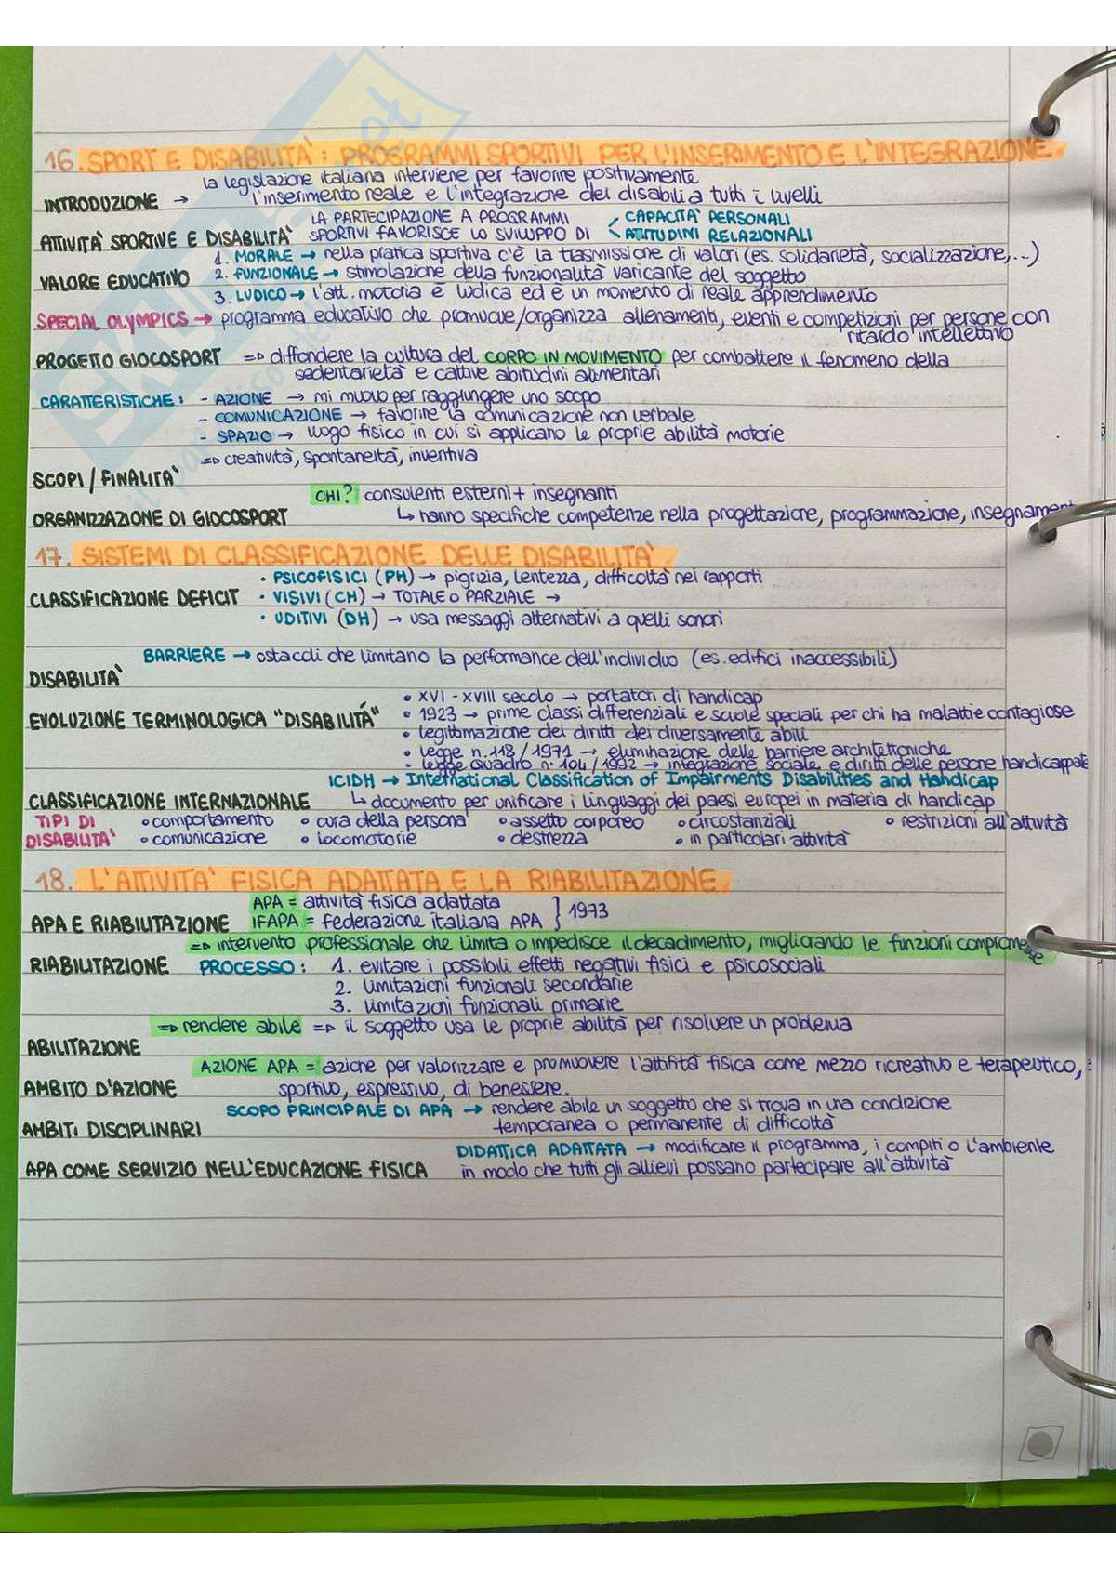 16. SPORT E DISABILITÀ: PROGRAMMI SPORTIVI PER L'INSERIMENTO E L'INTEGRAZIONE
INTRODUZIONE → la legislazione italiana interviene per favorire positivamente
l'inserimento reale e l'integrazione dei disabili a tutti i livelli
ATTIVITÀ SPORTIVE E DISABILITÀ LA PARTECIPAZIONE A PROGRAMMI SPORTIVI FAVORISCE LO SVILUPPO DI < CAPACITÀ PERSONALI
ATTITUDINI RELAZIONALI
VALORE EDUCATIVO 1. MORALE → nella pratica sportiva c'è la trasmissione di valori (es. solidarietà, socializzazione,...)
2. FUNZIONALE → stimolazione della funzionalità varicante del soggetto
3. LUDICO → l'att. motoria è ludica ed è un momento di reale apprendimento
SPECIAL OLYMPICS → programma educativo che promuove/organizza allenamenti, eventi e competizioni per persone con
ritardo intellettivo
PROGETTO GIOCOSPORT => diffondere la cultura del CORPO IN MOVIMENTO per combattere il fenomeno della
sedentarietà e cattive abitudini alimentari
CARATTERISTICHE: - AZIONE → mi muovo per raggiungere uno scopo
- COMUNICAZIONE → favorire la comunicazione non verbale
- SPAZIO → luogo fisico in cui si applicano le proprie abilità motorie
SCOPI/FINALITÀ => creatività, spontaneità, inventiva
ORGANIZZAZIONE DI GIOCOSPORT CHI? consulenti esterni + insegnanti
↳ hanno specifiche competenze nella progettazione, programmazione,
17. SISTEMI DI CLASSIFICAZIONE DELLE DISABILITÀ
CLASSIFICAZIONE DEFICIT • PSICOFISICI (PH) → pigrizia, lentezza, difficoltà nei rapporti
• VISIVI (CH) → TOTALE O PARZIALE →
• UDITIVI (DH) → usa messaggi alternativi a quelli sonori
DISABILITÀ BARRIERE → ostacoli che limitano la performance dell'individuo (es. edifici inaccessibili)
EVOLUZIONE TERMINOLOGICA "DISABILITÁ" • XVI - XVIII secolo → portatori di handicap
• 1923 → prime classi differenziali e scuole speciali per chi ha malattie contagiose
• legittimazione dei diritti dei diversamente abili
• legge n. 118/1971 → eliminazione delle barriere architettoniche
- legge quadro n. 104/1992 → integrazione sociale e diritti delle persone handicappate
CLASSIFICAZIONE INTERNAZIONALE ICIDH → International Classification of Impairments Disabilities and Handicap
↳ documento per unificare i linguaggi dei paesi europei in materia di handicap
TIPI DI DISABILITÀ • comportamento • cura della persona • assetto corporeo • circostanziali • restrizioni all'attività
• comunicazione • locomotorie • destrezza • in particolari attività
18. L'ATTIVITÀ FISICA ADATTATA E LA RIABILITAZIONE
APA E RIABILITAZIONE APA = attività fisica adattata
IFAPA = federazione italiana APA } 1973
RIABILITAZIONE => intervento professionale che limita o impedisce il decadimento, migliorando le funzioni compromesse
PROCESSO: 1. evitare i possibili effetti negativi fisici e psicosociali
2. limitazioni funzionali secondarie
3. limitazioni funzionali primarie
ABILITAZIONE => rendere abile => il soggetto usa le proprie abilità per risolvere un problema
AMBITO D'AZIONE AZIONE APA = azione per valorizzare e promuovere l'attività fisica come mezzo ricreativo e terapeutico,
sportivo, espressivo, di benessere.
AMBITI DISCIPLINARI SCOPO PRINCIPALE DI APA → rendere abile un soggetto che si trova in una condizione
temporanea o permanente di difficoltà
APA COME SERVIZIO NELL'EDUCAZIONE FISICA DIDATTICA ADATTATA → modificare il programma, i compiti o l'ambiente
in modo che tutti gli allievi possano partecipare all'attività